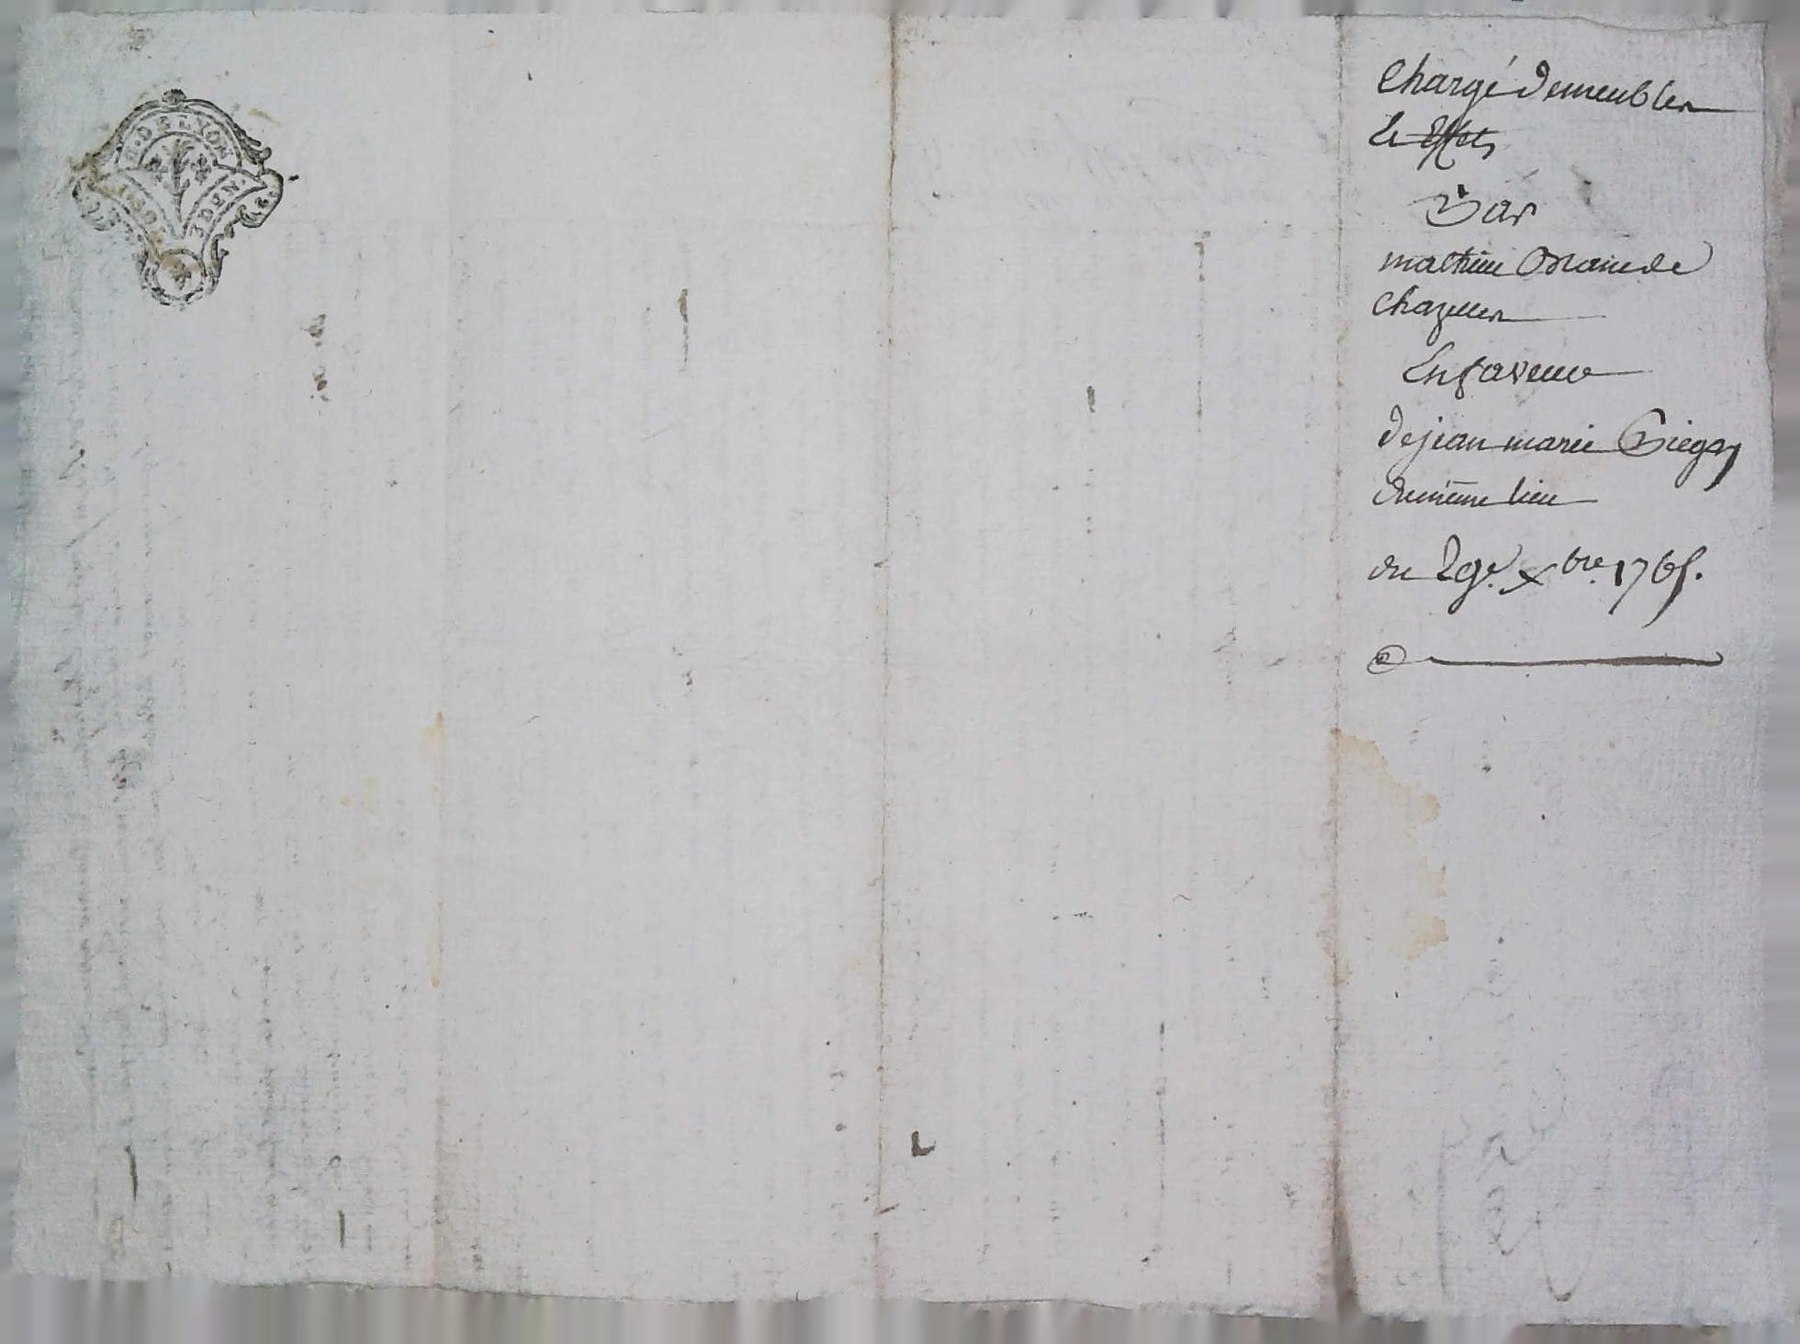 G. DE LYON
Chargé de meubles
et Effets
Par
mathieu de
Chazelles
En faveur
de jean marie
du même lieu
du 29e. Xbre. 1765.